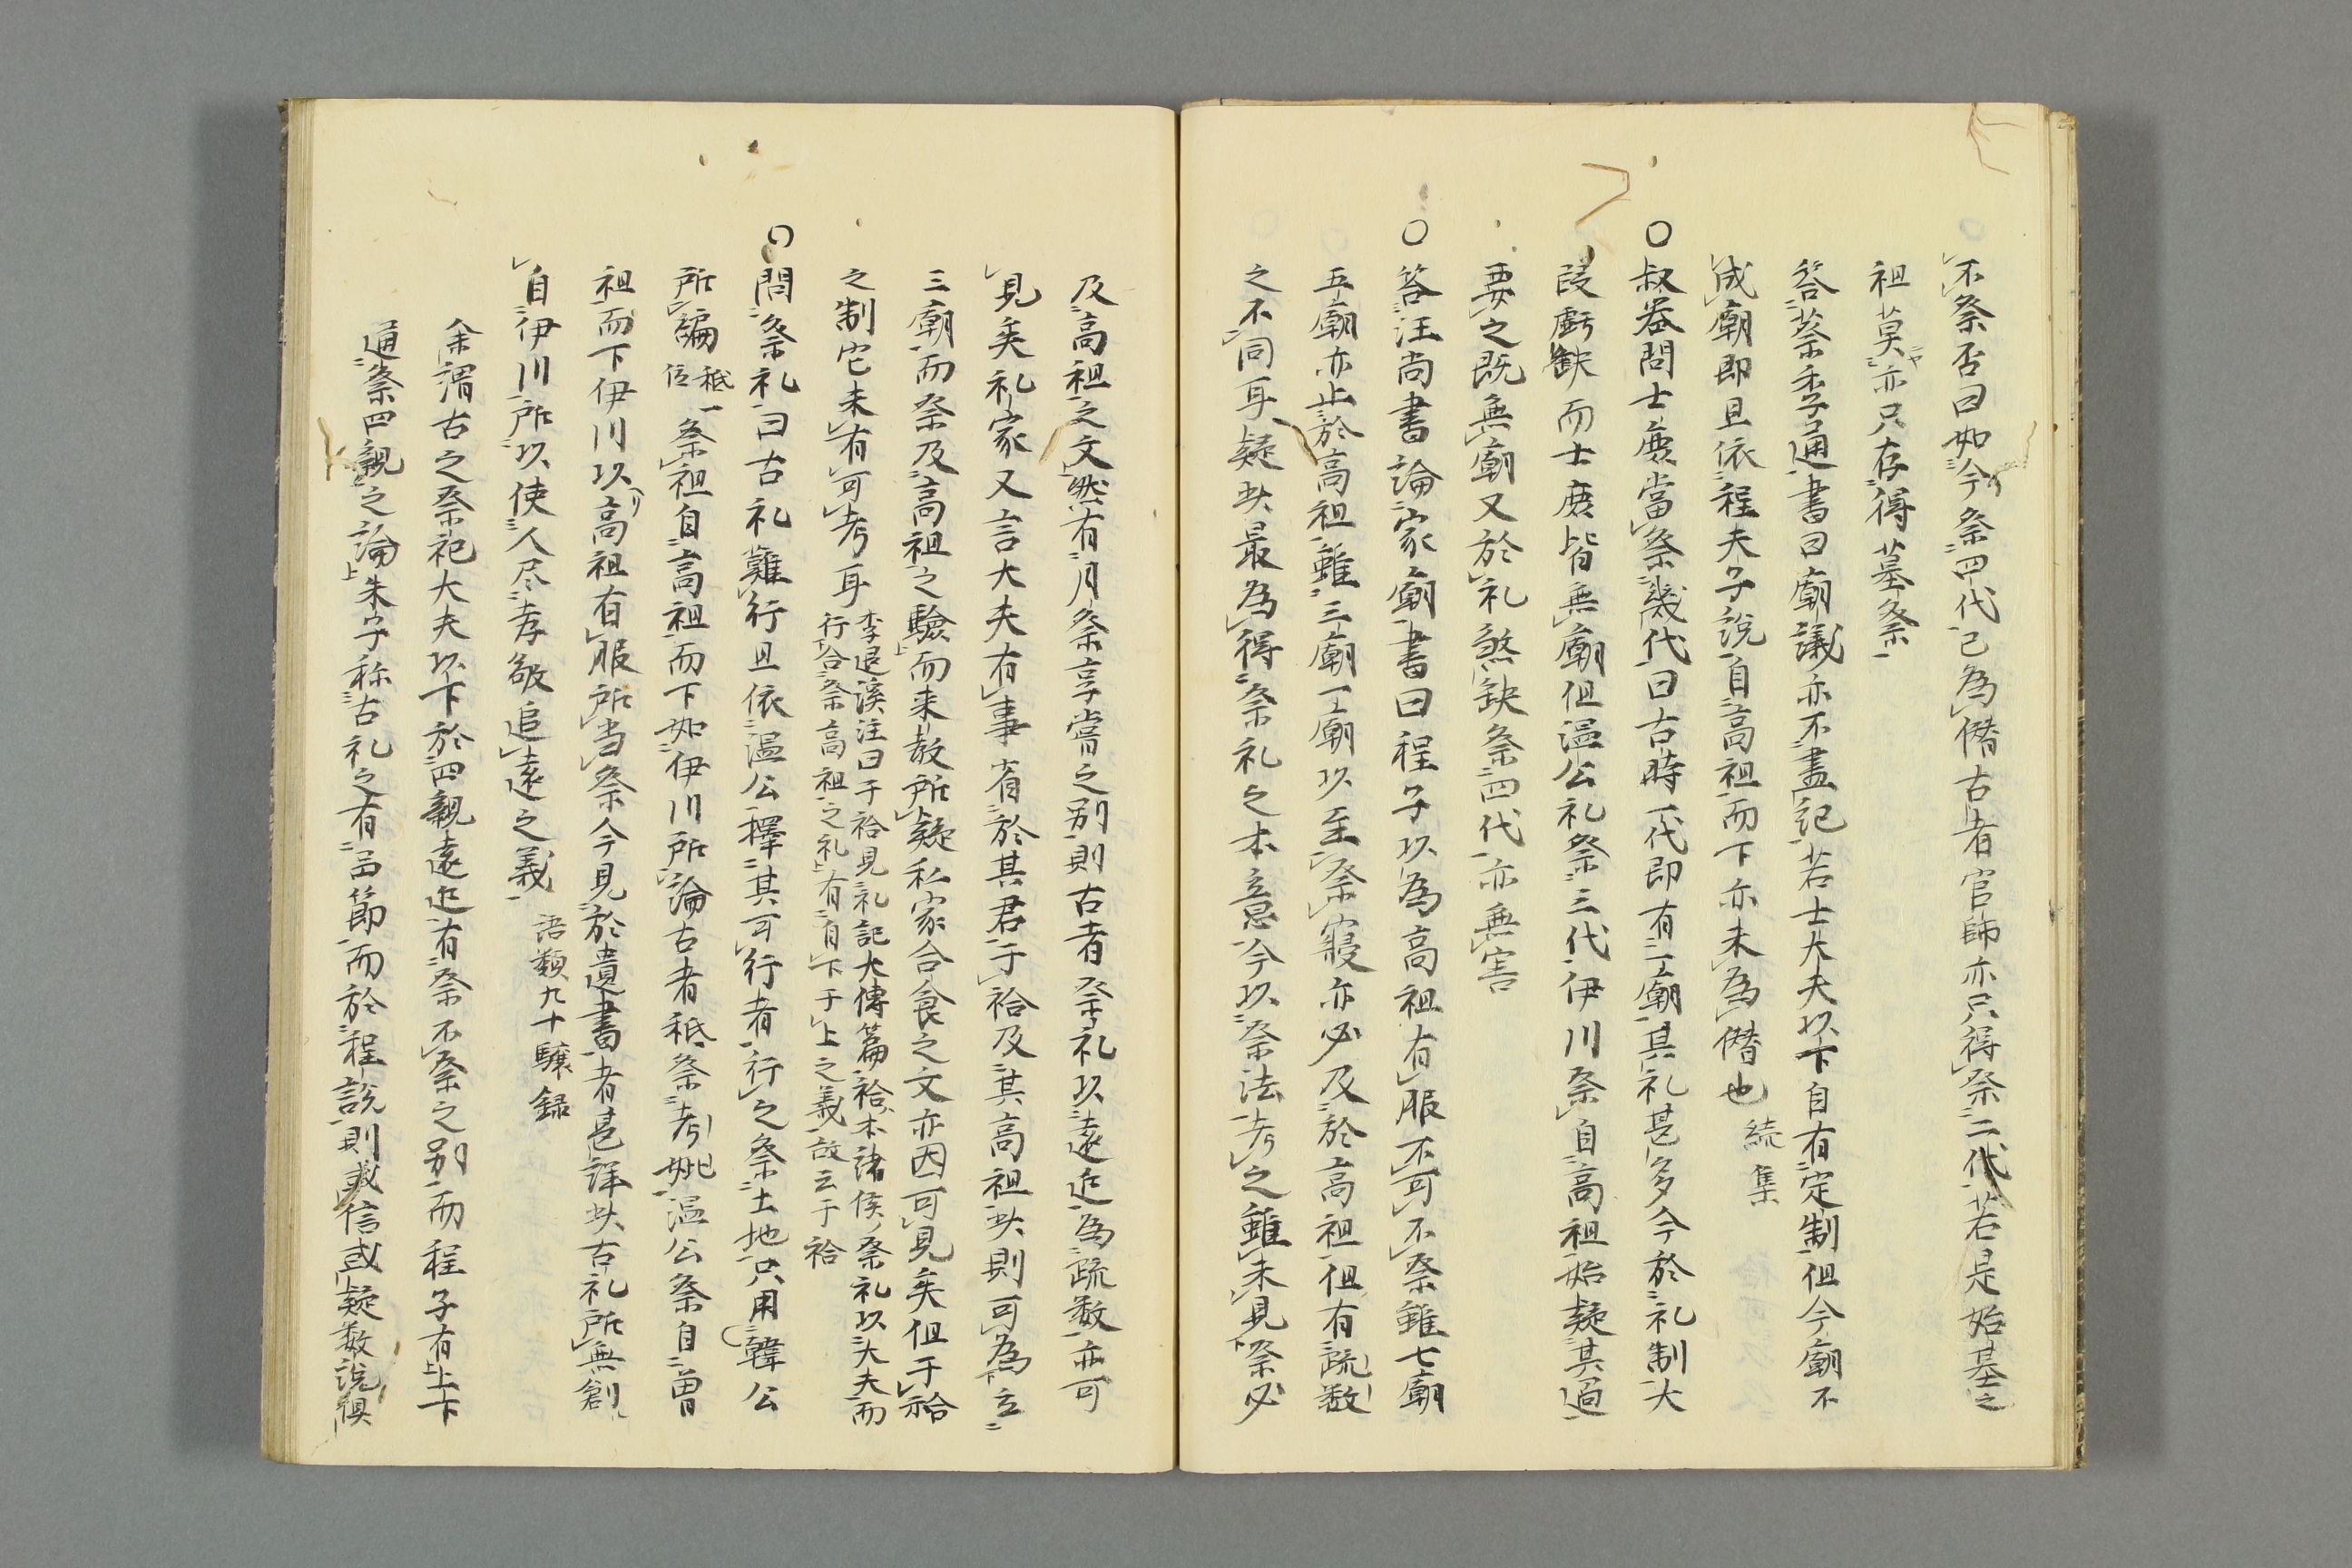 不祭否曰如今祭四代已為僭古者官師亦只得祭二代若是始基之
祖莫亦只存得墓祭
答蔡季通書曰廟議亦不盡記若士大夫以下自有定制但今廟不
成廟即且依程夫子説自高祖而下亦未為僭也 続集
〇叔器問士庶當祭幾代曰古時一代即有一廟其礼甚多今於礼制大
段虧缺而士庶皆無廟但温公礼祭三代伊川祭自高祖始疑其過
要之既無廟又於礼煞缺祭四代亦無害
〇答汪尚書論家廟書曰程子以為高祖有服不可不祭雖七廟
五廟亦止於高祖雖三廟一廟以至祭寝亦必及於高祖但有疏数
之不同耳疑此最為得祭礼之本意今以祭法考之雖未見祭必
及高祖之文然有月祭享嘗之別則古者祭礼以遠近為疏数亦可
見矣礼家又言大夫有事省於其君干祫及其高祖此則可為立
三廟而祭及高祖之驗而来教所疑私家合食之文亦因可見矣但干祫
之制它未有可考耳 李退溪注曰干祫見礼記大傳篇祫本諸侯祭礼以大夫而
行合祭高祖之礼有自下干上之義故云干祫
〇問祭礼曰古礼難行且依温公擇其可行者行之祭土地只用韓公
所編 祗
一祭祖自高祖而下如伊川所論古者祗祭考妣温公祭自曽
祖而下伊川以高祖有服所当祭今見於遺書者甚詳此古礼所無創
自伊川所以使人尽孝敬追遠之義 語類九十驤録
余謂古之祭祀大夫以下於四親遠近有祭不祭之別而程子有上下
通祭四親之論朱子称古礼之有品節而於程説則或信或疑数説俱